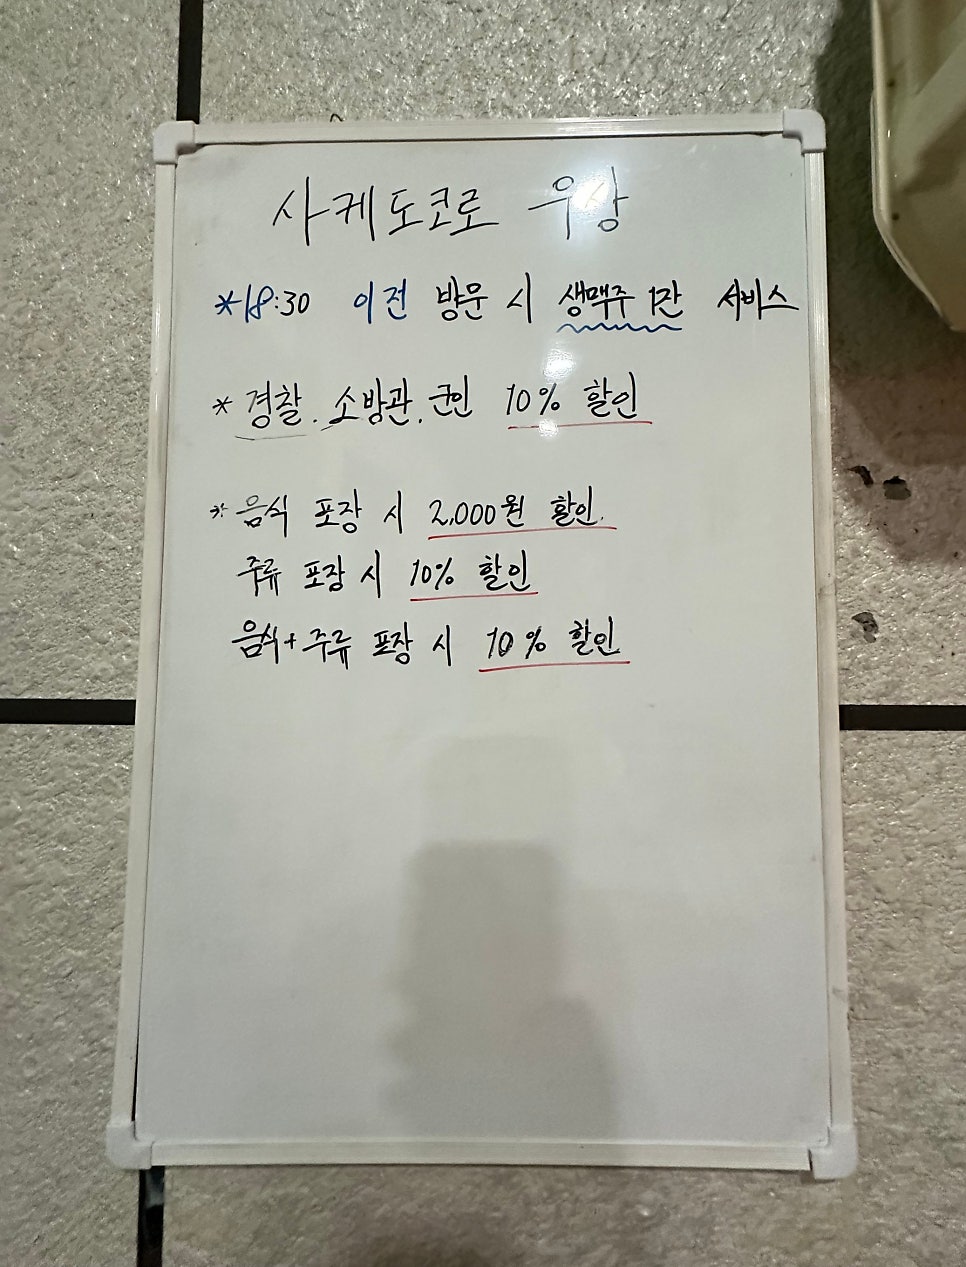 사케도코로 우상
*18:30 이전 방문 시 생맥주 1잔 서비스
* 경찰. 소방관. 군인 10% 할인
* 음식 포장 시 2,000원 할인.
주류 포장 시 10% 할인
음식+주류 포장 시 10% 할인